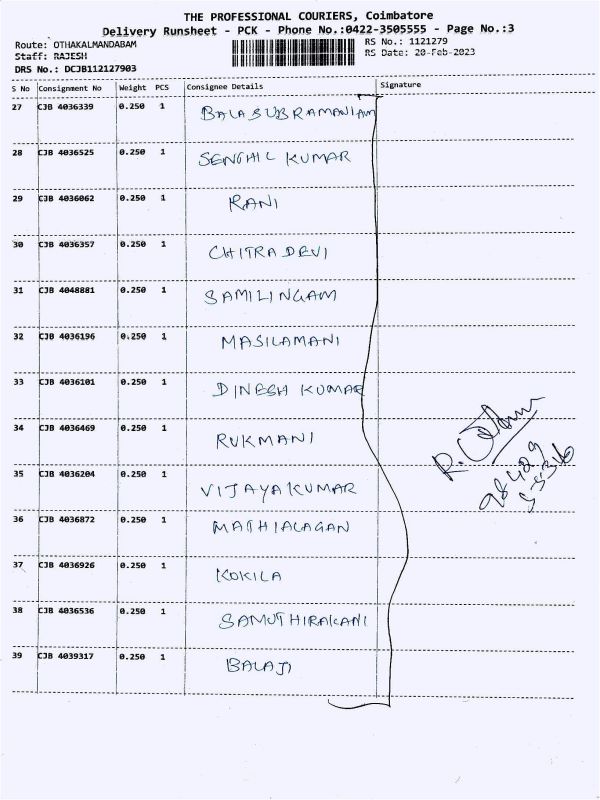 THE PROFESSIONAL COURIERS, Coimbatore
Delivery Runsheet - PCK - Phone No.:0422-3505555 - Page No.:3
Route: OTHAKALMANDABAM
Staff: RAJESH
DRS No.: DCJB112127903
RS No.: 1121279
RS Date: 20-Feb-2023
S No Consignment No Weight PCS Consignee Details Signature
27 CJB 4036339 0.250 1 BALASUBRAMANIAM
28 CJB 4036525 0.250 1 SENTHIL KUMAR
29 CJB 4036062 0.250 1 RANI
30 CJB 4036357 0.250 1 CHITRA DEVI
31 CJB 4048881 0.250 1 SAMILINGAM
32 CJB 4036196 0.250 1 MASILAMANI
33 CJB 4036101 0.250 1 DINESH KUMAR
34 CJB 4036469 0.250 1 RUKMANI
35 CJB 4036204 0.250 1 VIJAYAKUMAR
36 CJB 4036872 0.250 1 MATHIALAGAN
37 CJB 4036926 0.250 1 KOKILA
38 CJB 4036536 0.250 1 SAMUTHIRAKANI
39 CJB 4039317 0.250 1 BALAJI
98429